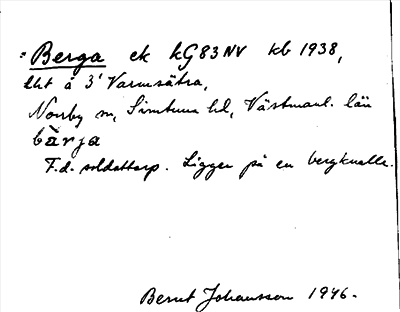 Berga ek kG83NV kb 1938,
lht å 3' Varmsätra,
Norrby sn, Simtuna hd, Västmanl. län
bärja
F.d. soldattorp. Ligger på en bergknalle.
Bernt Johansson 1946.